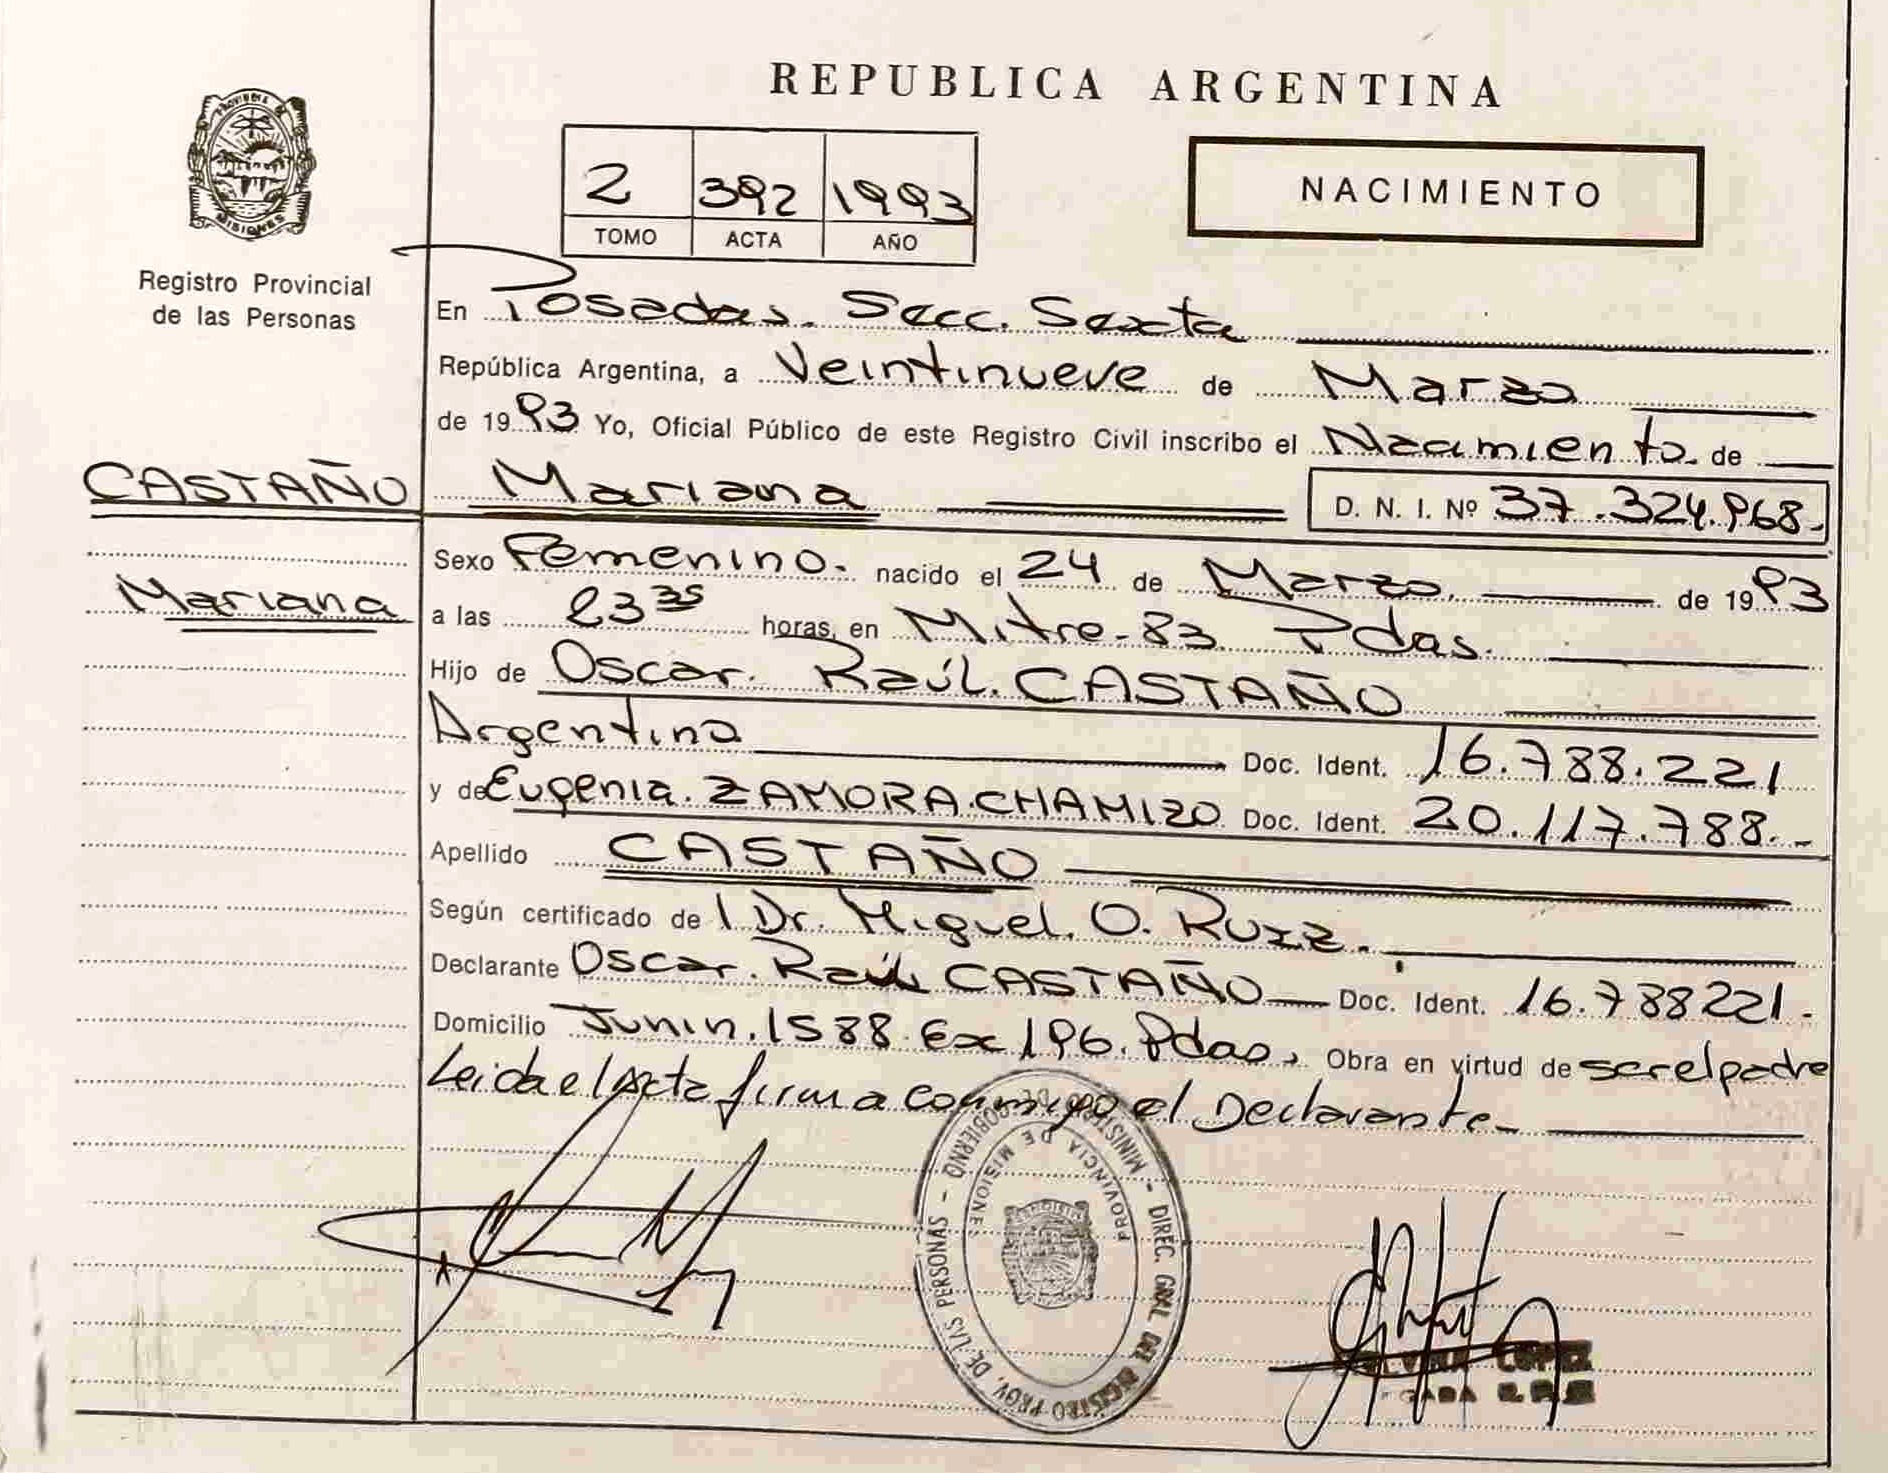 REPUBLICA ARGENTINA
PROVINCIA DE
MISIONES
Registro Provincial
de las Personas
2 392 1993
TOMO ACTA AÑO
NACIMIENTO
En Posadas. Secc. Sexta
República Argentina, a Veintinueve de Marzo
de 1993 Yo, Oficial Público de este Registro Civil inscribo el Nacimiento. de
CASTAÑO Mariana D. N. I. Nº 37.324.968.-
Sexo Femenino. nacido el 24 de Marzo. de 1993
Mariana
a las 23 35 horas, en Mitre-83. Pdas.
Hijo de Oscar. Raúl. CASTAÑO
Argentina Doc. Ident. 16.788.221
y de Eugenia. ZAMORA.CHAMIZO Doc. Ident. 20.117.788.-
Apellido CASTAÑO
Según certificado de l Dr. Miguel. O. Ruiz.
Declarante Oscar. Raúl CASTAÑO Doc. Ident. 16.788221.
Domicilio Junin.1588. Ex 196. Pdas. Obra en virtud de ser el padre
Leida el Acta firma conmigo el Declarante-
DIREC. GRAL DEL REGISTRO PROV. DE LAS PERSONAS - MINISTERIO DE GOBIERNO -
PROVINCIA DE MISIONES